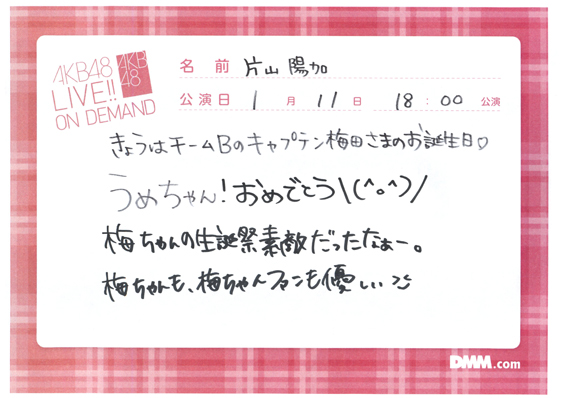 AKB48
LIVE!!
ON DEMAND
AKB
48
名前 片山陽加
公演日 1月11日 18:00公演
きょうはチームBのキャプテン梅田さまのお誕生日♡
うめちゃん!おめでとう\(^o^)/
梅ちゃんの生誕祭素敵だったなぁー。
梅ちゃんも、梅ちゃんファンも優しい
DMM.com